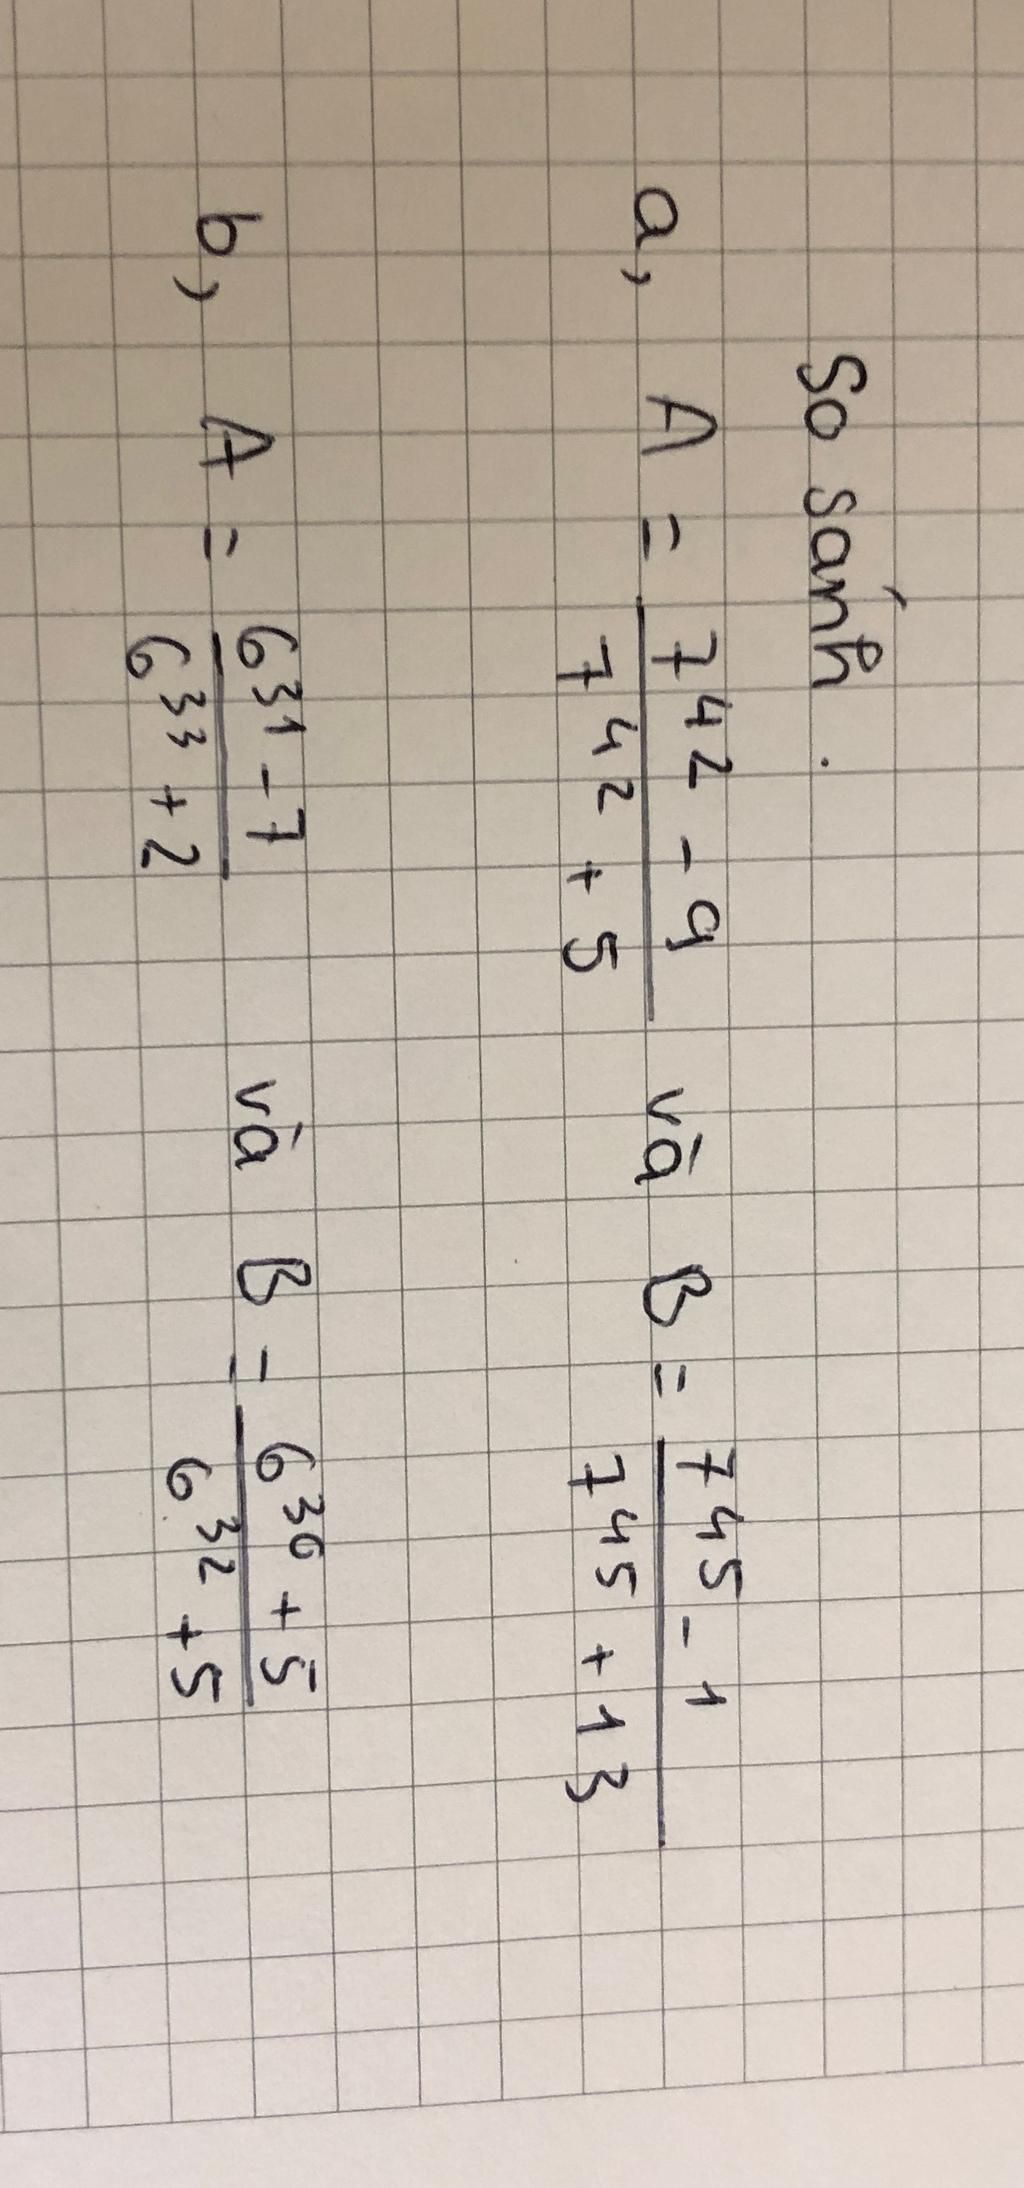 So sánh.
a, A = \frac{7^{42} - 9}{7^{42} + 5} và B = \frac{7^{45} - 1}{7^{45} + 13}
b, A = \frac{6^{31} - 7}{6^{33} + 2} và B = \frac{6^{30} + 5}{6^{32} + 5}